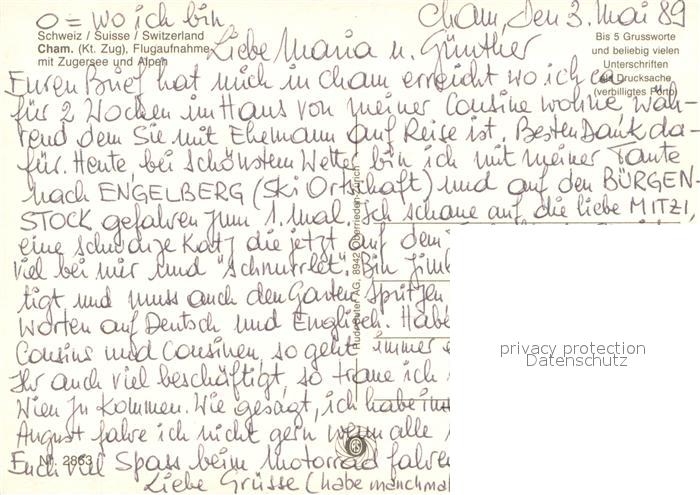 o = wo ich bin
Cham, den 3. Mai 89
Schweiz / Suisse / Switzerland
Cham. (Kt. Zug), Flugaufnahme
mit Zugersee und Alpen
Bis 5 Grussworte
und beliebig vielen
Unterschriften
als Drucksache
(verbilligtes Porto)
Liebe Maria u. Günther
Euren Brief hat mich in Cham erreicht wo ich ca
für 2 Wochen im Haus von meiner Cousine wohne wäh-
rend dem Sie mit Ehemann auf Reise ist. Besten Dank da-
für. Heute, bei schönstem Wetter bin ich mit meiner Tante
nach ENGELBERG (Ski Ortschaft) und auf den BÜRGEN-
STOCK gefahren zum 1. mal. Ich schaue auf die liebe MITZI,
eine schwarze Katz die jetzt auf dem
viel bei mir und "schnurrlet". Bin
tigt und muss auch den Garten spritzen
worten auf Deutsch und Englisch. Habe
Cousins und Cousinen, so geht immer
Ihr auch viel beschäftigt, so traue ich
Wien zu kommen. Wie gesagt, ich habe im
August fahre ich nicht gern wenn alle
Euch viel Spass beim Motorrad fahren
Liebe Grüsse (habe manchmal
Nr. 2863
AG, 8942 Oberrieden-Zürich
privacy protection
Datenschutz